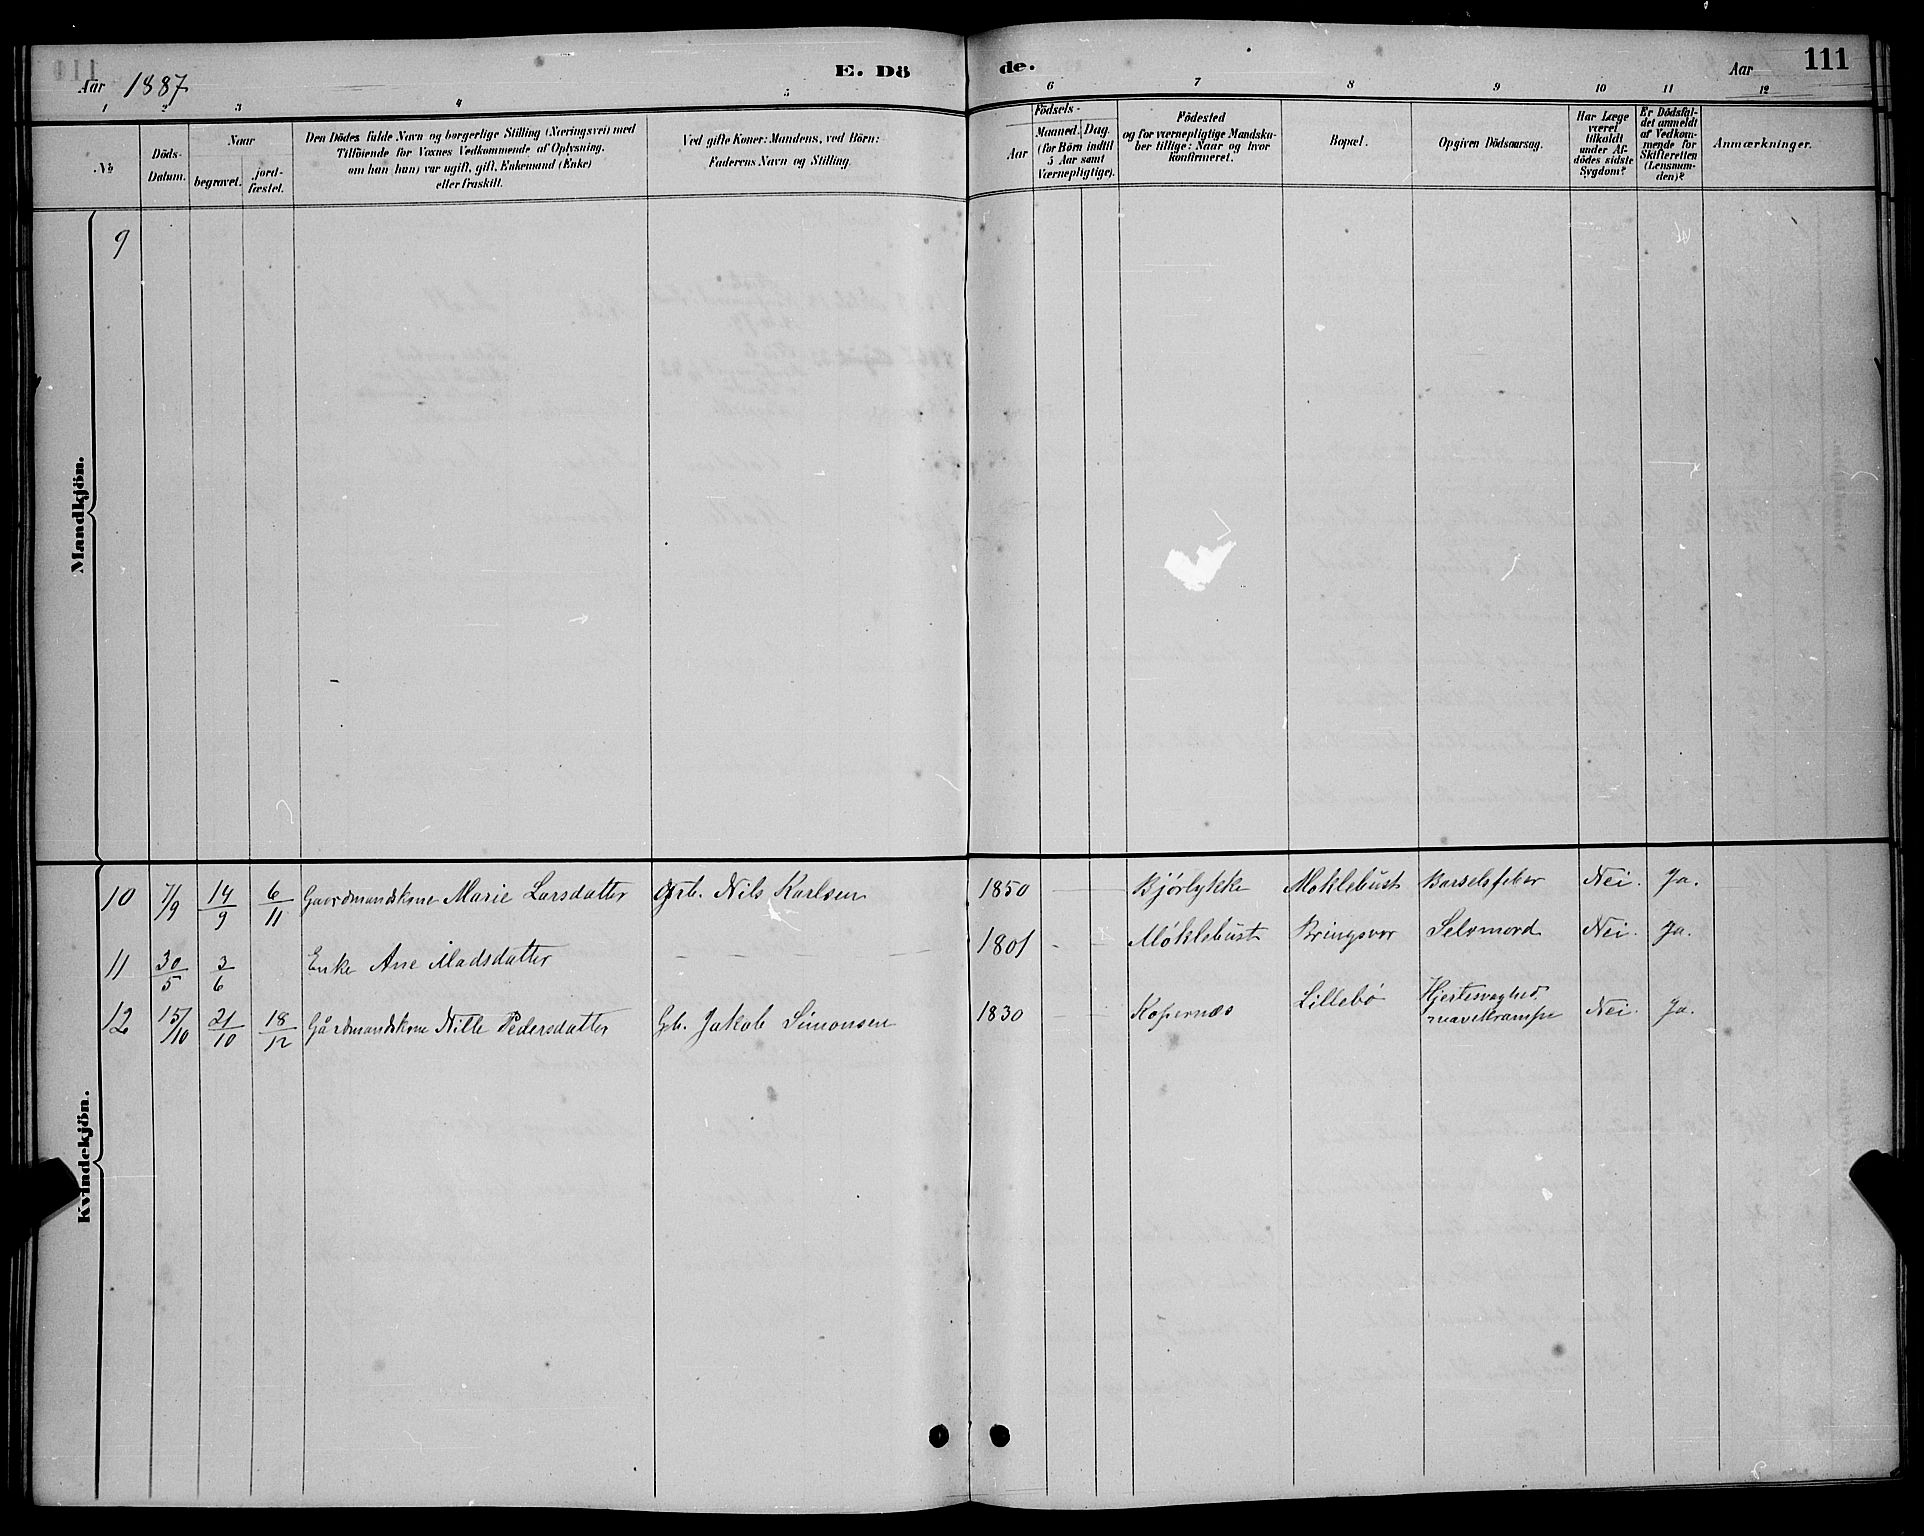 Aar 1887
E. Dö
de.
Aar
111
1 2 3 4 5 6 7 8 9 10 11 12
№
Döds-
Datum.
Naar
begravet.
jord-
fæstet.
Den Dödes fulde Navn og borgerlige Stilling (Næringsvei) med
Tilföiende for Voxnes Vedkommende af Oplysning,
om han (hun) var ugift, gift, Enkemand (Enke)
eller fraskilt.
Ved gifte Koner: Mandens, ved Börn:
Faderens Navn og Stilling.
Födsels-
Aar
Maaned.
Dag.
(for Börn indtil
5 Aar samt
Værnepligtige).
Födested
og for værnepligtige Mandska-
ber tillige: Naar og hvor
konfirmeret.
Bopæl.
Opgiven Dödsaarsag.
Har Læge
været
tilkaldt
under Af-
dödes sidste
Sygdom?
Er Dödsfal-
det anmeldt
af Vedkom-
mende for
Skifteretten
(Lensman-
den)?
Anmærkninger.
Mandkjön.
9
Kvindekjön.
10 7/9 14/9 6/11 Gaardmandskone Marie Larsdatter Grb. Nils Karlsen 1850 Bjørlykke Moklebust Barselsfeber Nei. Ja.
11 30/5 3/6 Enke Ane Madsdatter 1801 Møklebust Bringsvor Selvmord Nei. Ja.
12 15/10 21/10 18/12 Gårdmandskone Nille Pedersdatter Gb. Jakob Simonsen 1830 Kopernæs Lillebø Hjertesvaghed, mavekrampe Nei. Ja.